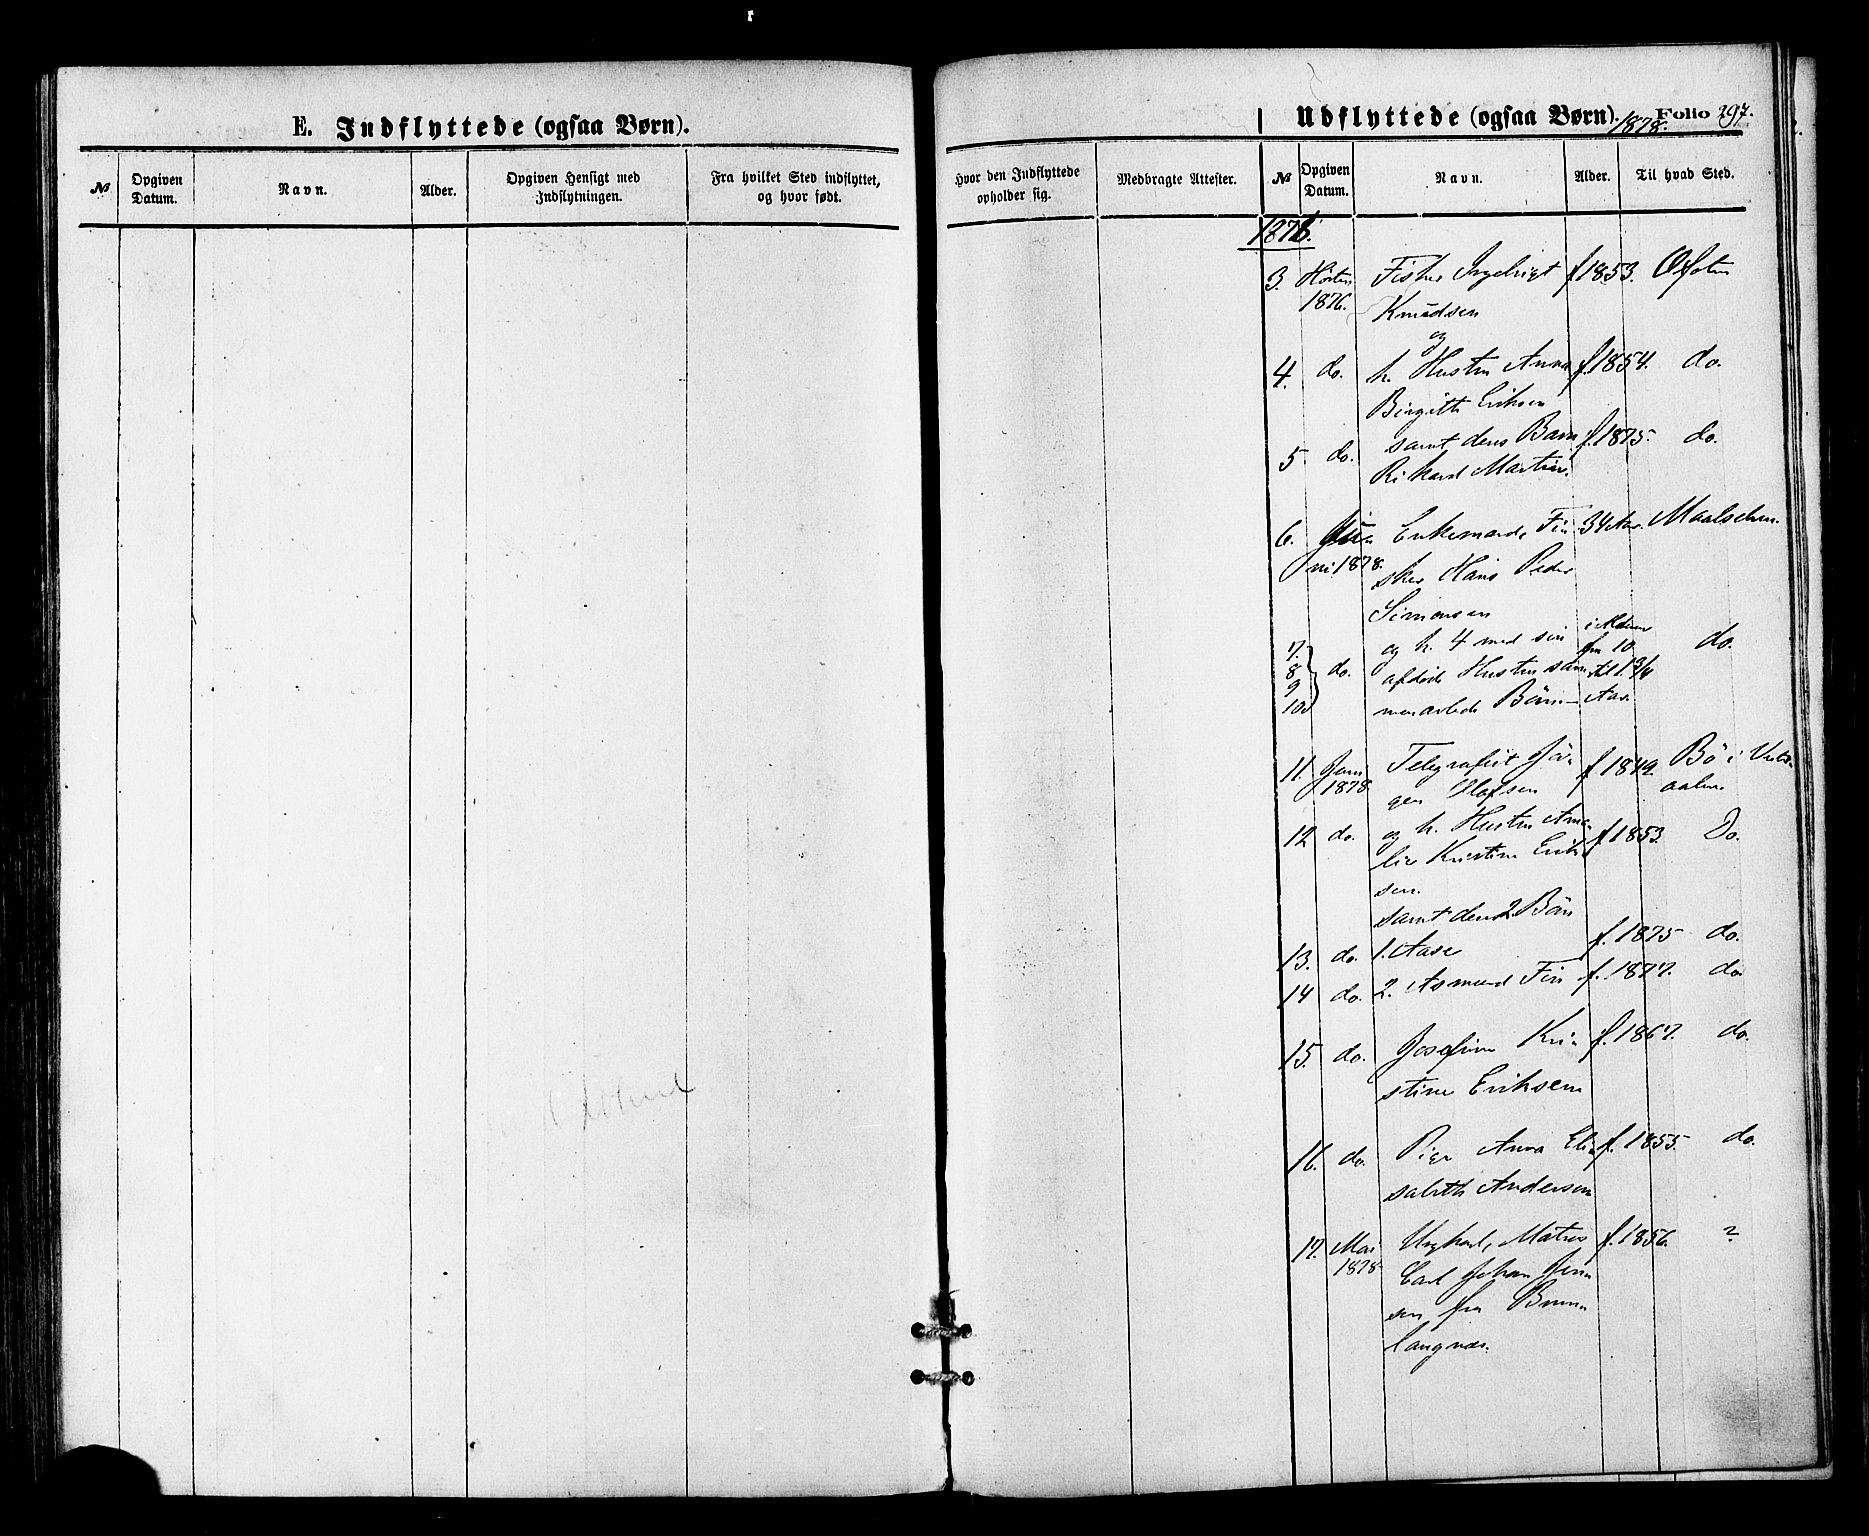 E. Indflyttede (ogsaa Børn).
Udflyttede (ogsaa Børn). 1878. Folio 297.
№ Opgiven Datum. Navn. Alder. Opgiven Hensigt med Indflytningen. Fra hvilket Sted indflyttet, og hvor født.
Hvor den Indflyttede opholder sig. Medbragte Attester. № Opgiven Datum. Navn. Alder. Til hvad Sted.
1876.
3. Høsten Fisker Ingebrigt f 1853. Ofoten
1876. Knudsen
og
4. do. h. Hustru Anna f. 1854. do.
Birgitte Eriksen
5 do. samt deres Barn f. 1875. do.
Rikard Martin.
6. Ju- Enkemand, Fi- 34 Aar. Maalselven.
ni 1878. sker Hans Peder
Simonsen
7. og h. 4 med sin i Alder
8 do. afdøde Hustru sam- fra 10 do.
9 til 1 3/4
10 menavlede Børn Aar.
11. Juni Telegrafist Jør- f 1849. Bø i Vester-
1878 gen Olafsen aalen.
12 do. og h. Hustru Ama- f 1853. Do.
lie Kristine Erik-
sen.
samt deres 2 Børn
13. do. 1. Aase f. 1875 do.
14 do. 2. Asmund Fin f. 1877. do.
15. do. Josefine Kri- f. 1867. do.
stine Eriksen
16. do. Pige Anna Eli- f. 1855. do.
sabeth Andersen
17. Mai Ungkarl, Matros f. 1856. ?
1878 Carl Johan Jen-
sen fra Brun-
langnæs.